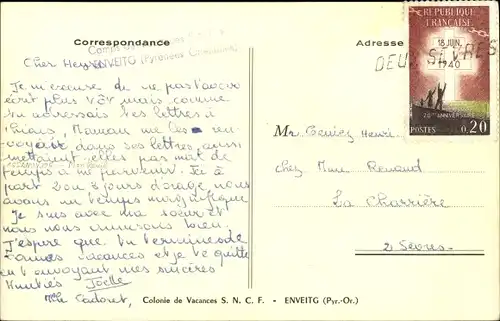 Correspondance
Adresse
ENVEITG (Pyrénées Orientales)
REPUBLIQUE
FRANÇAISE
18 JUIN
1940
DEUX SEVRES
20e ANNIVERSAIRE
POSTES 0,20
Cher
Je m'excuse de ne pas t'avoir
écrit plus tôt mais comme
tu adressais tes lettres à
Paris, Maman me les ren-
voyait dans ses lettres, aussi
mettaient-elles pas mal de
temps à me parvenir. Ici à
part 2 ou 3 jours d'orage, nous
avons un temps magnifique
Je suis avec ma soeur et
nous nous amusons bien.
J'espère que tu termines de
bonnes vacances et je te quitte
en t'envoyant mes sincères
Amitiés Joëlle
Mlle Cadoret,
Mr Henri
chez Mme Renaud
La Charrière
2 Sèvres
Colonie de Vacances S. N. C. F. - ENVEITG (Pyr.-Or.)